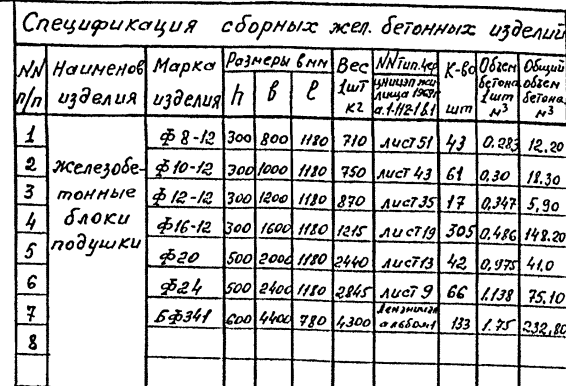 Спецификация сборных жел. бетонных изделий
NN п/п Наименов изделия Марка изделия Размеры в мм h в l Вес 1шт кг NN тип. чер К-во шт Объем бетона 1шт м³ Общий объем бетона м³
1 ф8-12 300 800 1180 710 лист 51 43 0.283 12.20
2 ф10-12 300 1000 1180 750 лист 43 61 0.30 18.30
3 ф12-12 300 1200 1180 870 лист 35 17 0.347 5,90
4 ф16-12 300 1600 1180 1215 лист 19 305 0.486 148.20
5 ф20 500 2000 1180 2440 лист 13 42 0,975 41.0
6 ф24 500 2400 1180 2845 лист 9 66 1.138 75.10
7 БФ341 600 4400 780 4300 133 1.75 232,80
8
Железобе-
тонные
блоки
подушки